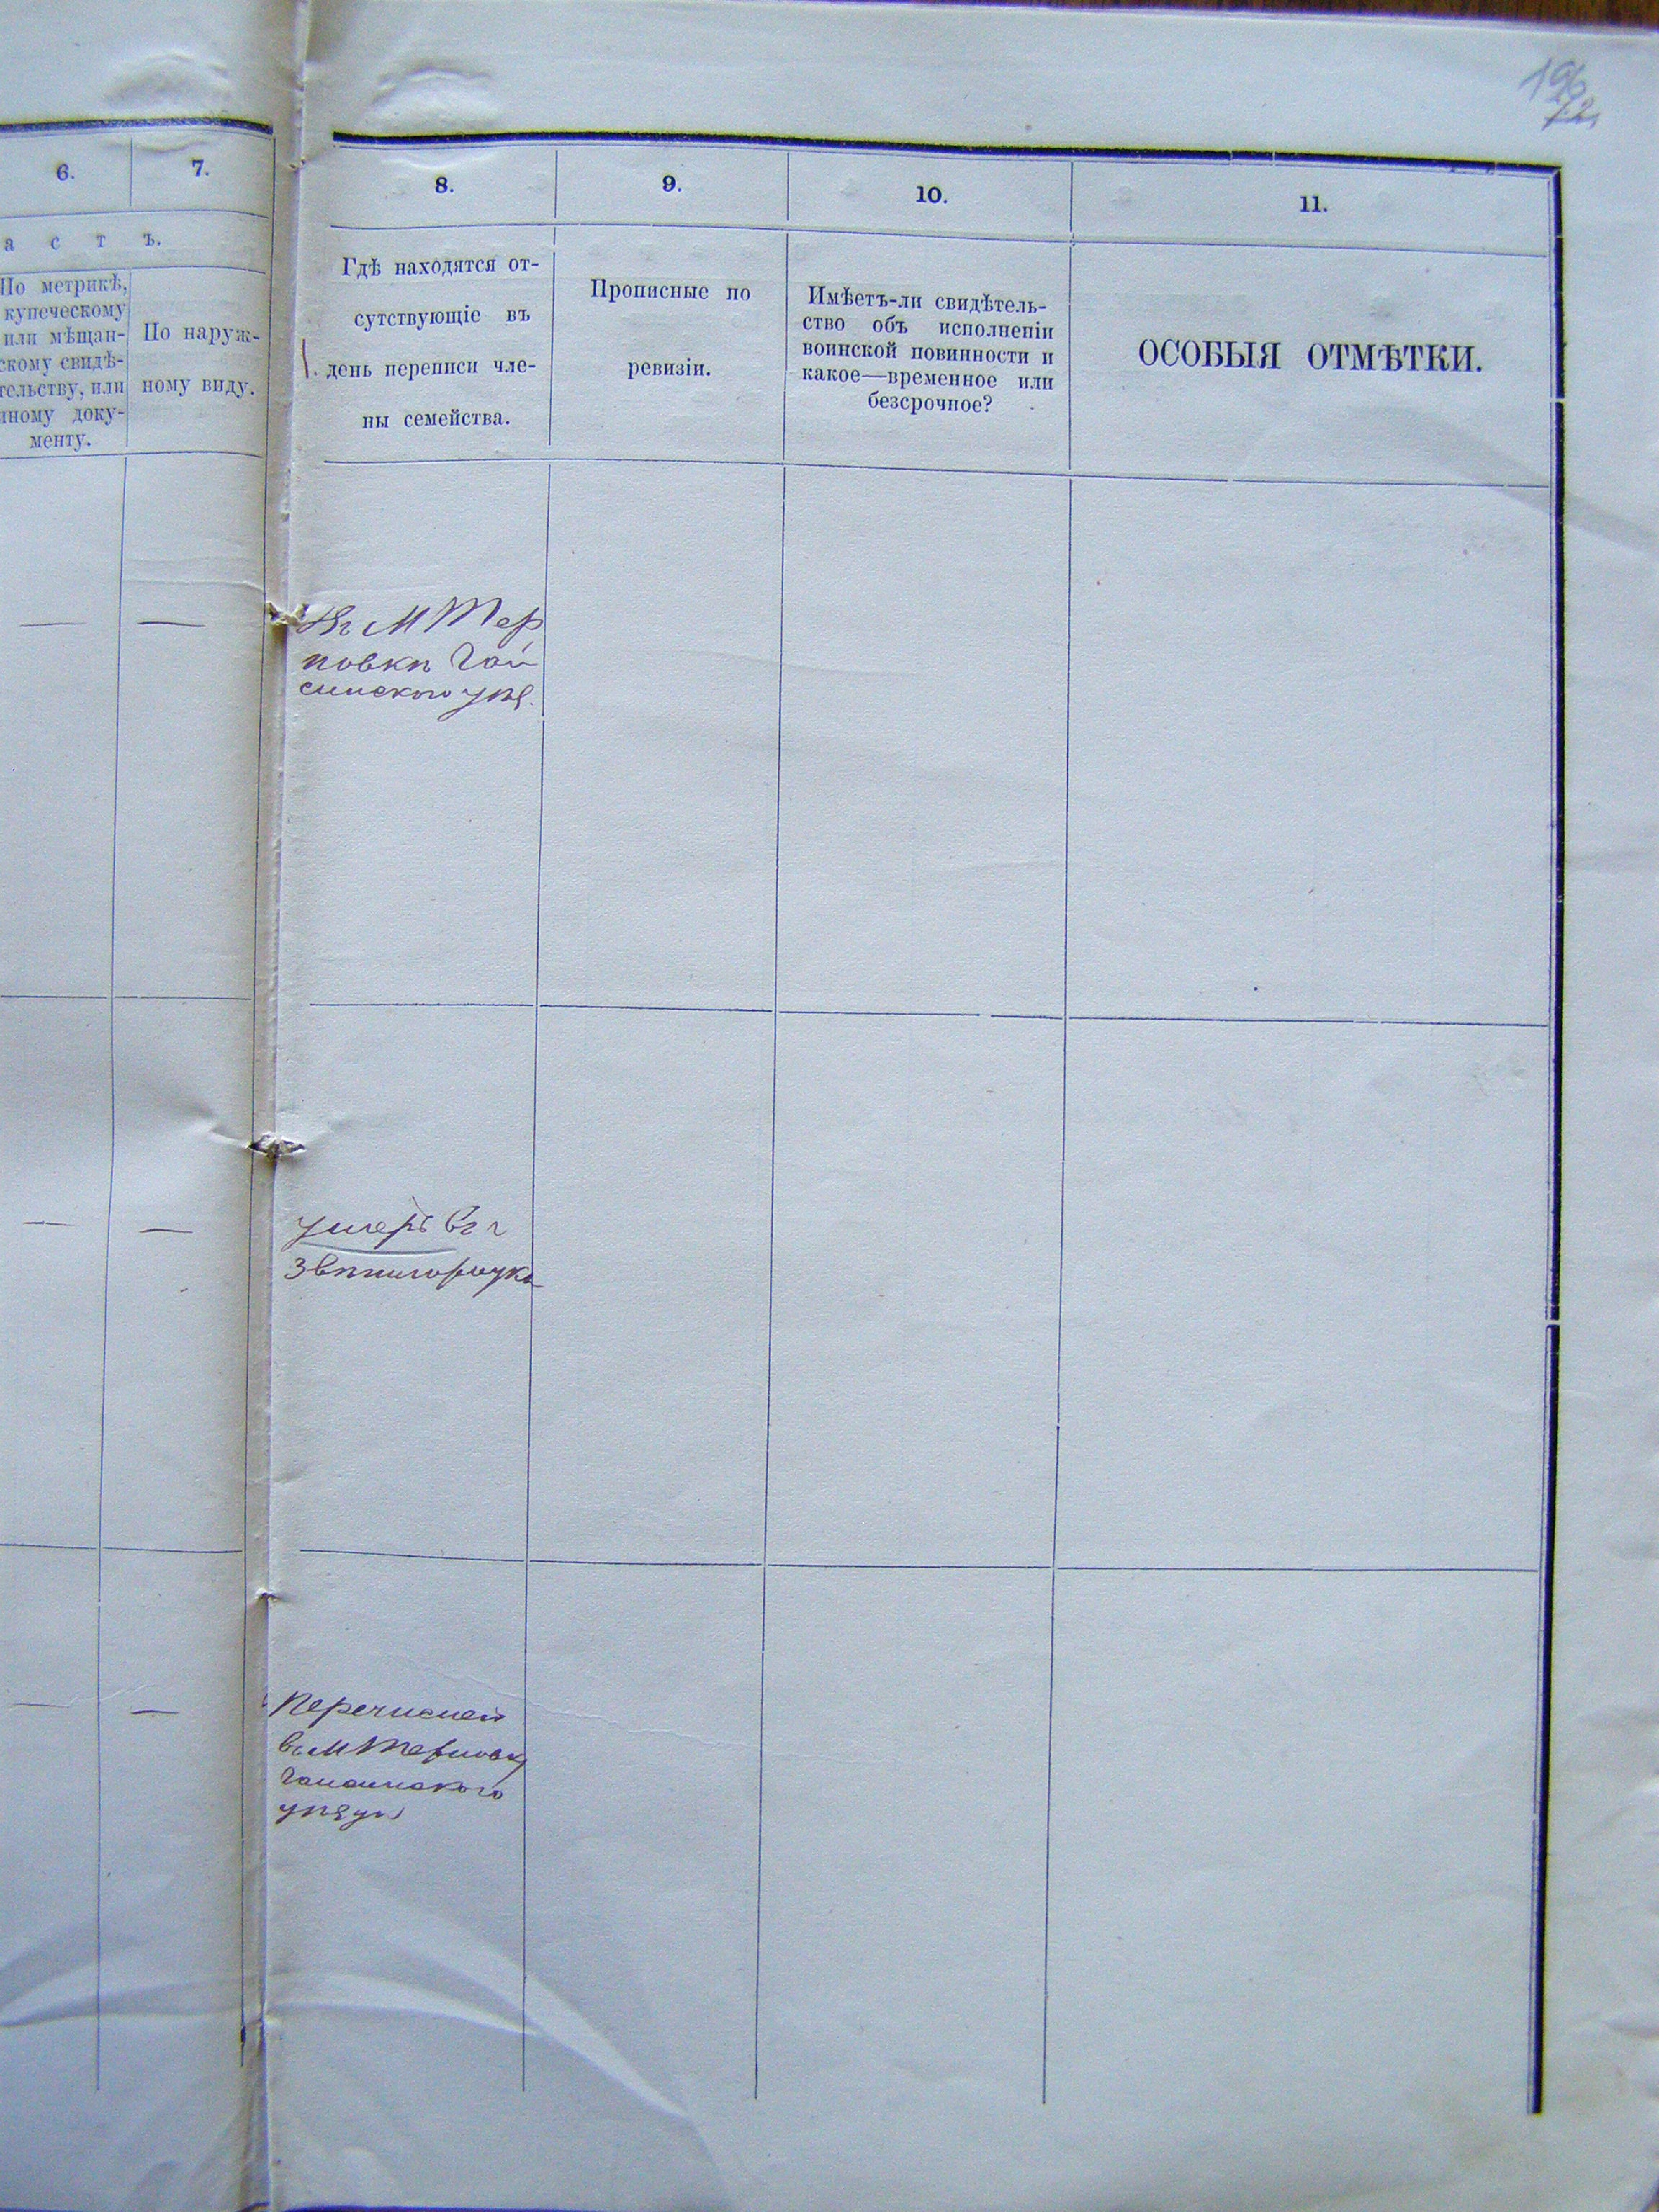 196
72
6.
7.
а с т ъ.
По метрикѣ,
купеческому
или мѣщан-
скому свидѣ-
тельству, или
иному доку-
менту.
По наруж-
ному виду.
8.
9.
10.
11.
Гдѣ находятся от-
сутствующіе въ
день переписи чле-
ны семейства.
Прописные по
ревизіи.
Имѣетъ-ли свидѣтель-
ство объ исполненіи
воинской повинности и
какое—временное или
безсрочное?
ОСОБЫЯ ОТМѢТКИ.
Въ М Тер
новкѣ Гай
синского уѣз.
умеръ въ г
Звѣнигородка
перечислен
въ М Терновку
Гайсинского
уѣзда